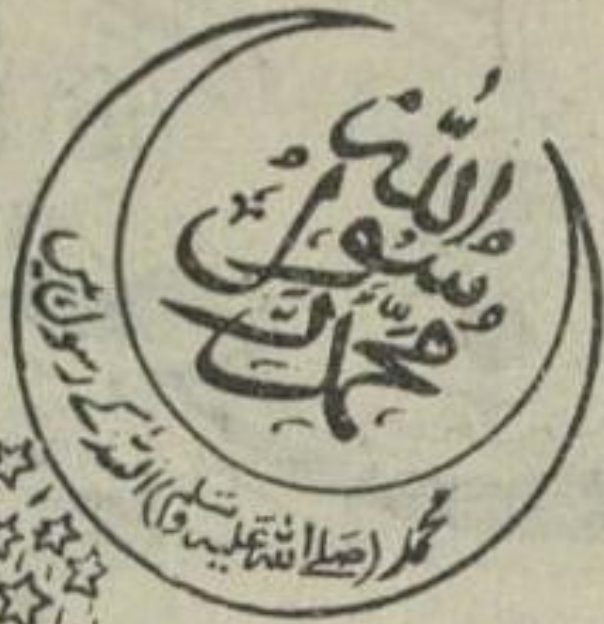 مُحَمَّدٌ رَّسُوْلُ اللّٰهِ
محمد (صلے اللّٰہ علیہ وسلم) اللّٰہ کے رسول ہیں